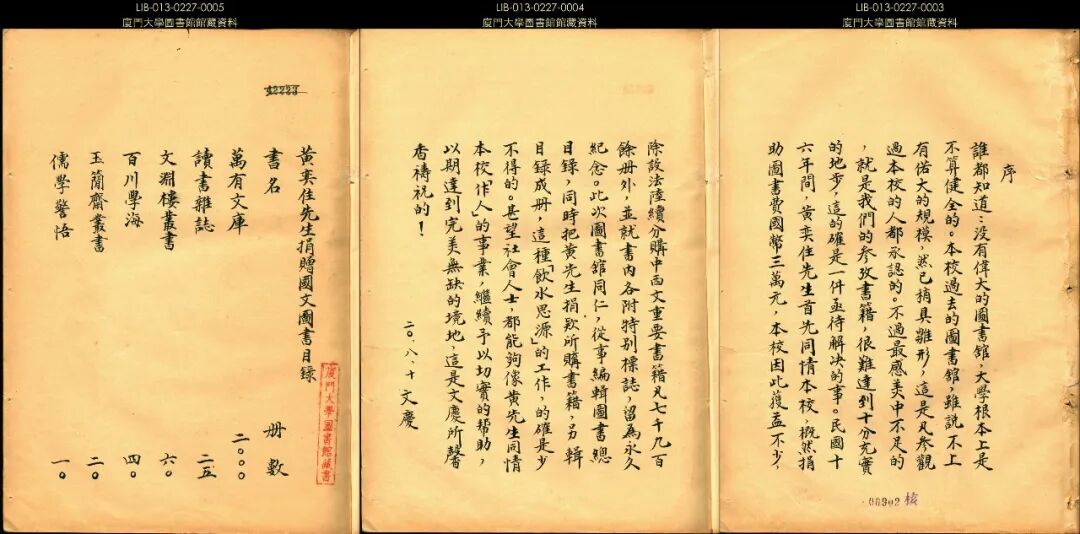 LIB-013-0227-0003
廈門大學圖書館館藏資料
序
誰都知道：沒有偉大的圖書舘，大學根本上是
不算健全的。本校過去的圖書舘，雖說不上
有偌大的規模，然已稍具雛形，這是凡參觀
過本校的人都承認的。不過最感美中不足的
，就是我們的參攷書籍，很難達到十分充實
的地步，這的確是一件亟待解決的事。民國十
六年間，黃奕住先生首先同情本校，概然捐
助圖書費國幣三萬元，本校因此獲益不少，
00902 核
LIB-013-0227-0004
廈門大學圖書館館藏資料
除設法陸續分購中西文重要書籍凡七千九百
餘册外，並就書內各附特別標誌，留為永久
紀念。此次圖書舘同仁，從事編輯圖書總
目錄，同時把黃先生捐欵所購書籍，另輯
目錄成册，這種「飲水思源」的工作，的確是少
不得的。甚望社會人士，都能夠像黃先生同情
本校「作人」的事業，繼續予以切實的帮助，
以期達到完美無缺的境地，這是文慶所馨
香禱祝的！
二〇．八．十 文慶
LIB-013-0227-0005
廈門大學圖書館館藏資料
42223
黃奕住先生捐贈國文圖書目錄
廈門大學圖書館藏書
書名 册數
萬有文庫 二〇〇〇
讀書雜誌 二五
文淵樓叢書 六〇
百川學海 四〇
玉簡齋叢書 二〇
儒學警悟 一〇